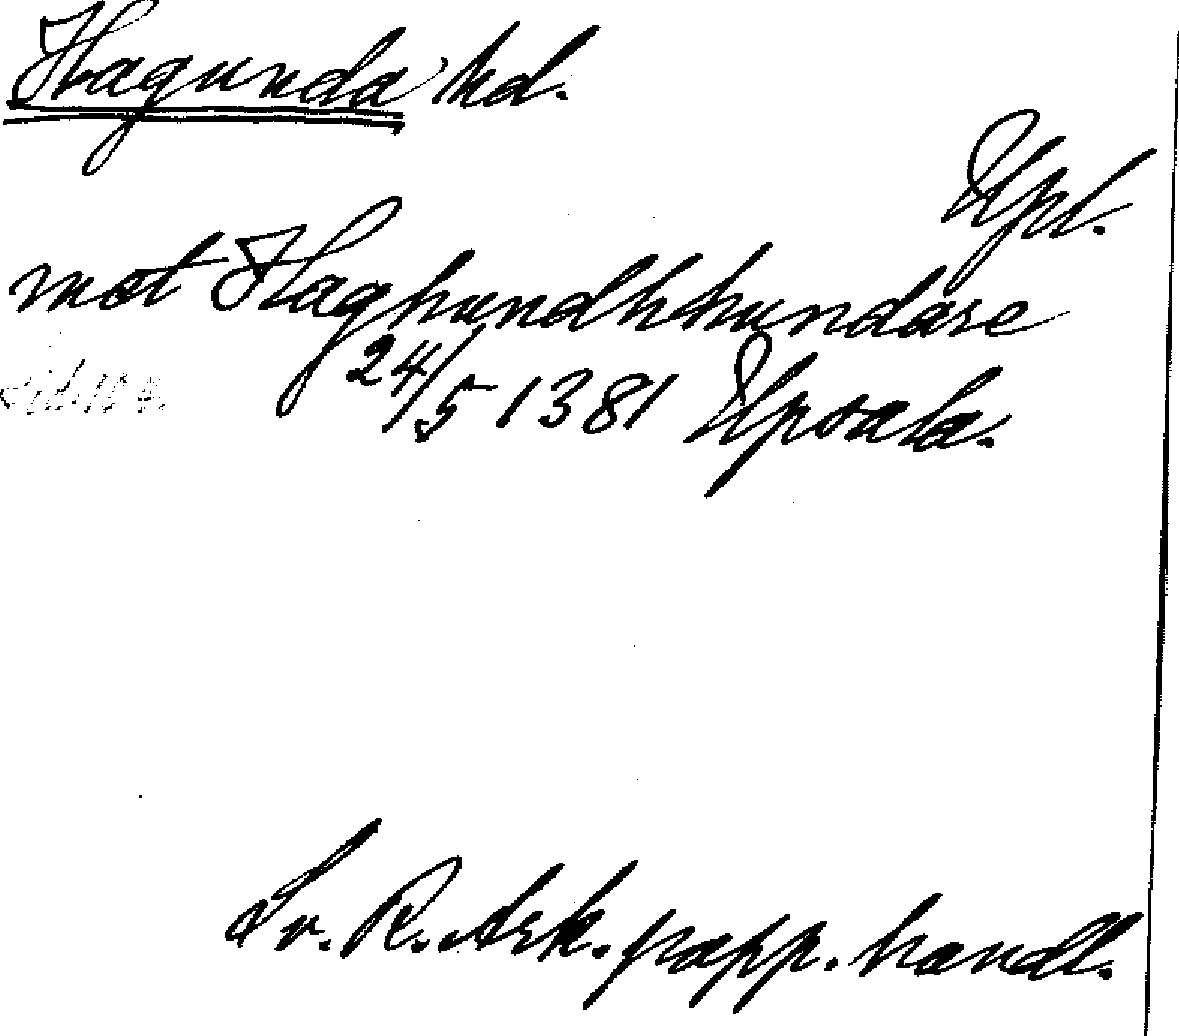 Hagunda hd.
Upl.
mot Haghundhhundare
24/5 1381 Upsala.
Sv. R. Ark. papp. handl.